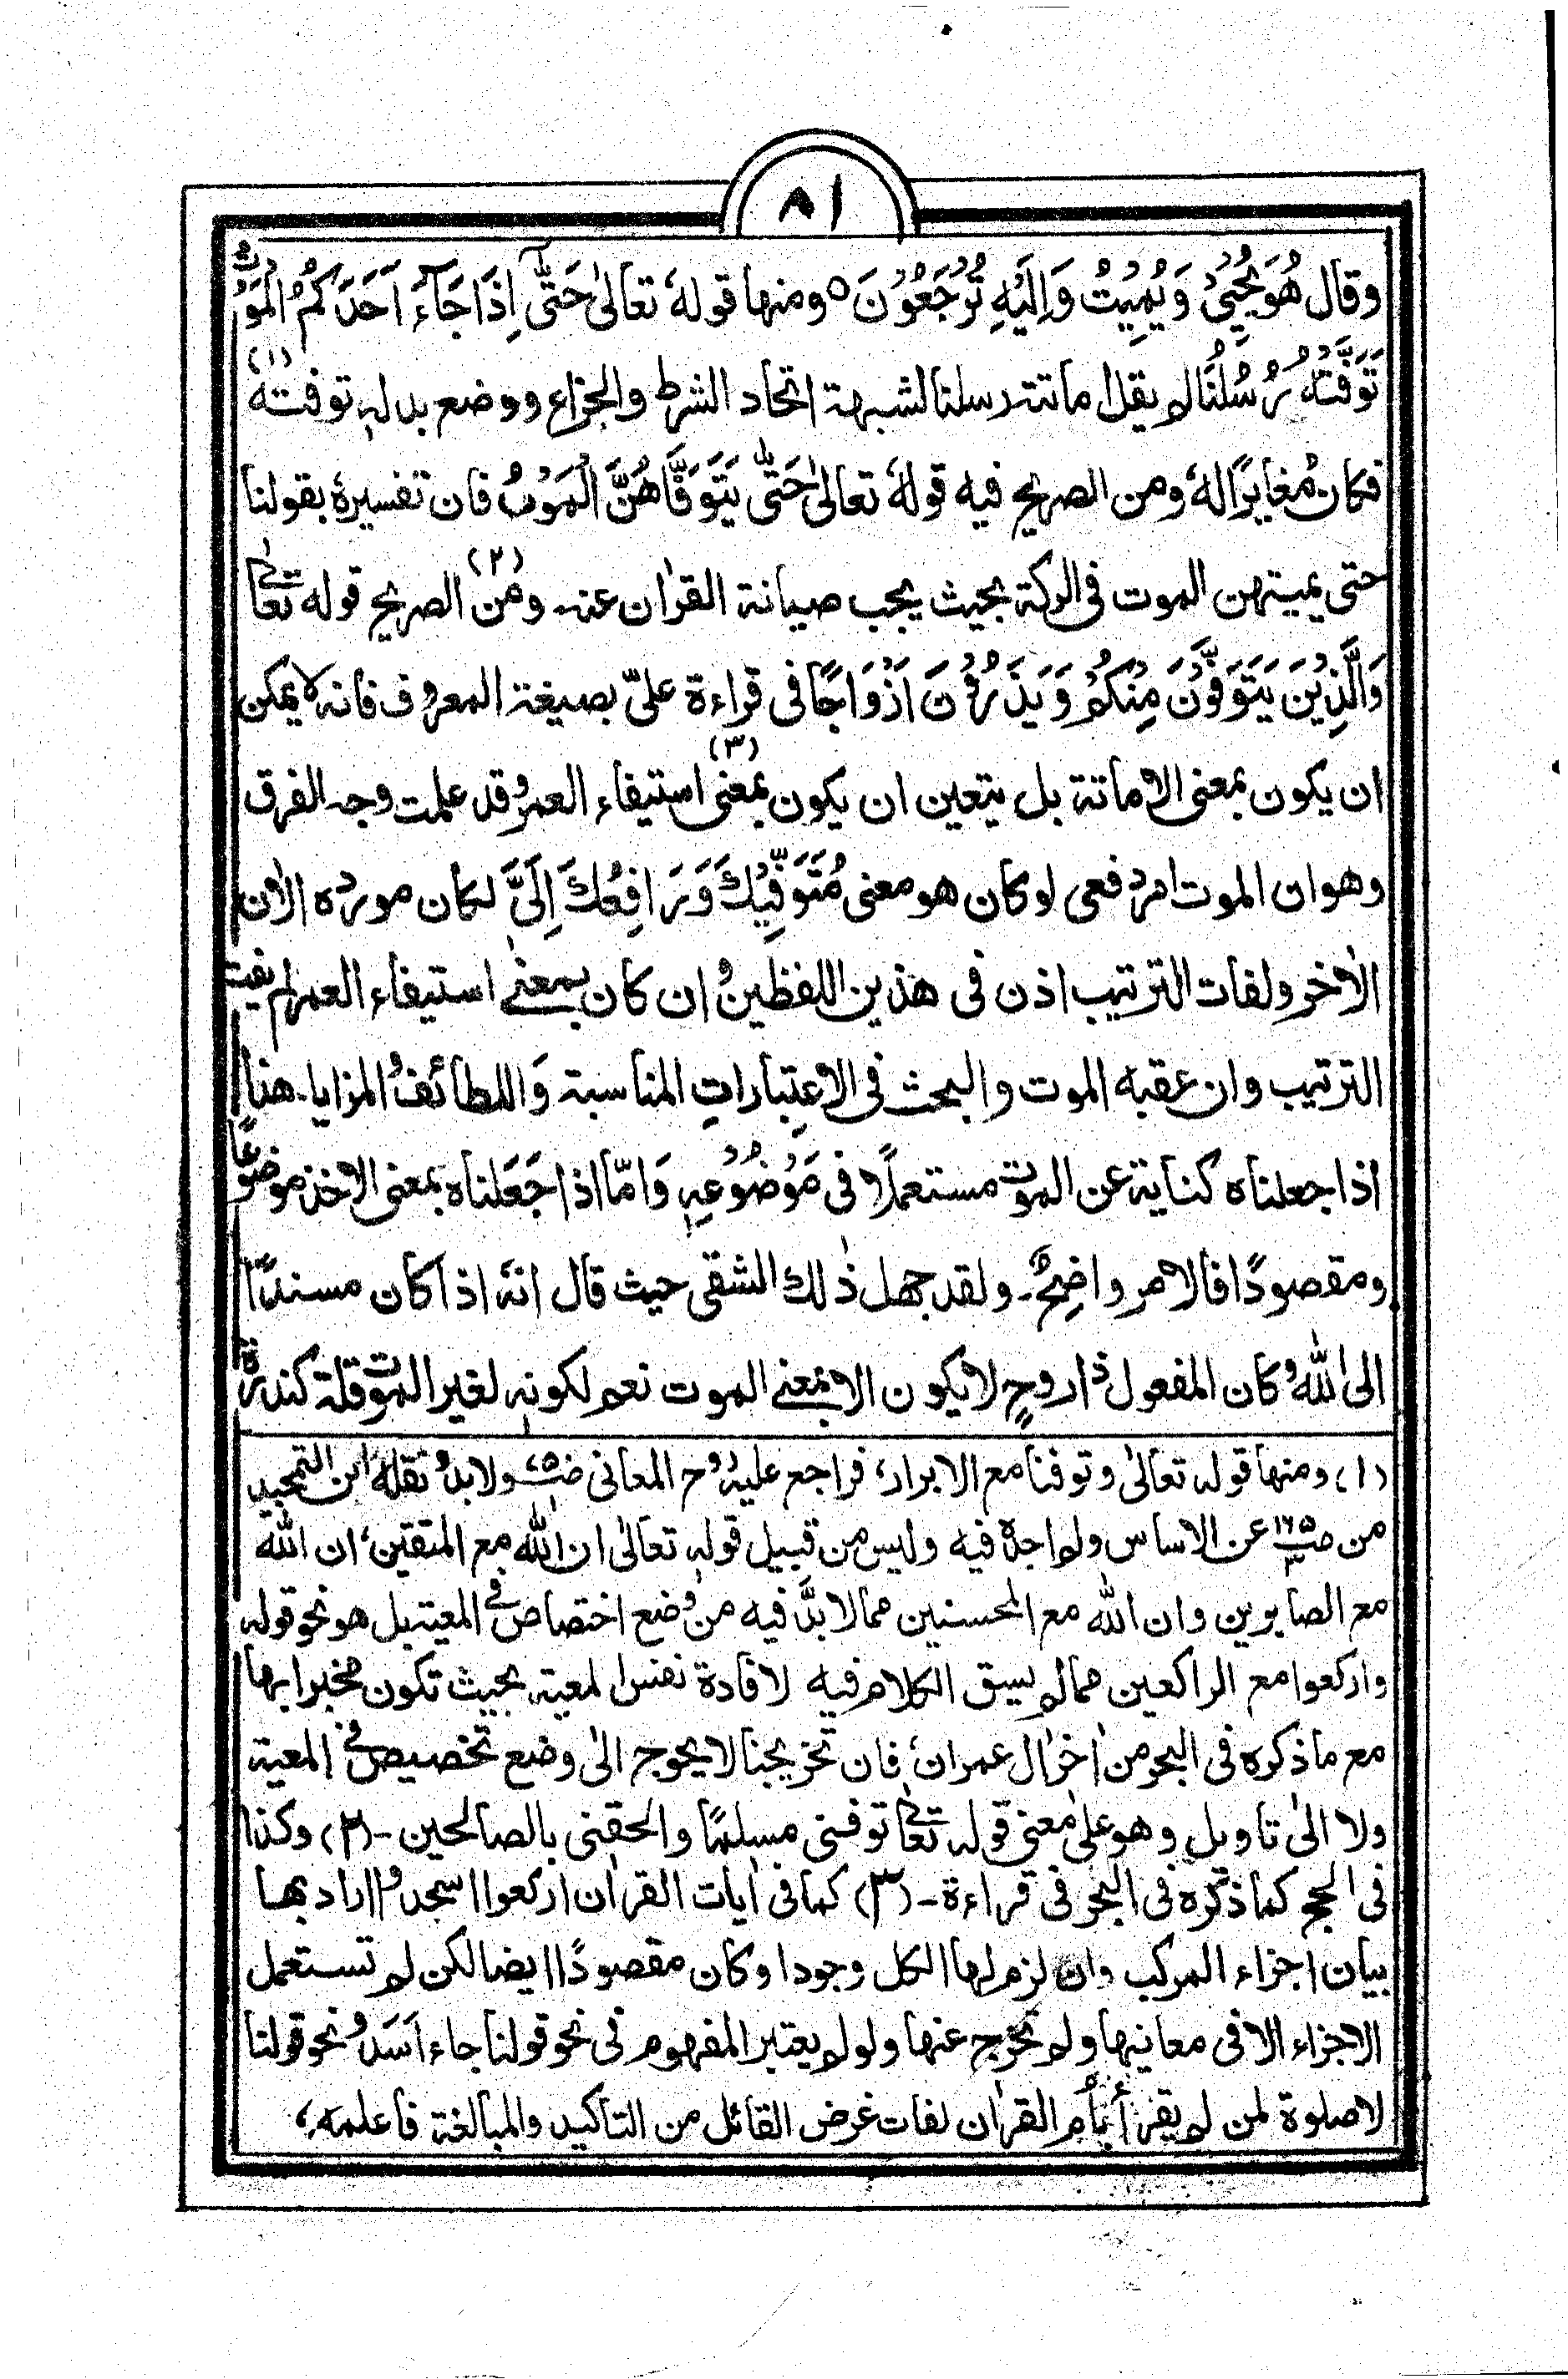 ٨١
وقال هُوَ يُحْيِيْ وَ يُمِيْتُ وَ اِلَيْهِ تُرْجَعُوْنَ ٥ ومنها قوله تعالىٰ حَتّٰى اِذَا جَآءَ اَحَدَكُمُ الْمَوْتُ
تَوَفَّتْهُ رُسُلُنَا لم يقل اماتته رسلنا لشبهة اتحاد الشرط والجزاء ووضع بدله توفته (١)
فكان مُغايرًا لهٗ ومن الصريح فيه قولهٗ تعالىٰ حَتّٰى يَتَوَفَّاهُنَّ الْمَوْتُ فان تفسيرهٗ بقولنا
حتى يميتهن الموت فى الركة بحيث يجب صيانة القرآن عنه۔ (٢) ومن الصريح قوله تعالىٰ
وَالَّذِيْنَ يَتَوَفَّوْنَ مِنْكُمْ وَ يَذَرُوْنَ اَزْوَاجًا فى قراءة علىّ بصيغة المعروف فانه لا يمكن
ان يكون بمعنى الاماتة بل يتعين ان يكون بمعنى (٣) استيفاء العمر وقد علمت وجه الفرق
وهو ان الموت امر دفعى لو كان هو معنى مُتَوَفِّيْكَ وَ رَافِعُكَ اِلَيَّ لكان مورده الآن
الآخر ولفات الترتيب اذن فى هذين اللفظين و ان كان بمعنىٰ استيفاء العمر لم يفت
الترتيب وان عقبه الموت والبحث فى الاعتِبَاراتِ المناسبة وَاللطائف والمزايا۔ هذا
اذا جعلناه كناية عن الموت مستعملًا فى مَوْضُوْعِهٖ وَامّا اذا جَعَلناه بمعنى الاخذ موضوعًا
ومقصودًا فالامر واضِحٌ۔ ولقد جهل ذٰلك الشقى حيث قال انهٗ اذا كان مسندًا
الى الله و كان المفعول ذا روحٍ لا يكون الا بمعنى الموت نعم لكونه لغير الموت قلة كندرة
(١) ومنها قوله تعالىٰ وتوفنا مع الابرار، فراجع عليه روح المعانى ولا بد و نقله ابن التمجيد
من عن الاساس ولم اجده فيه وليس من قبيل قوله تعالىٰ ان الله مع المتقين، ان الله
مع الصابرين وان الله مع المحسنين مما لا بدَّ فيه من وضع اختصاص فى المعية بل هو نحو قوله
واركعوا مع الراكعين مما لم يسق الكلام فيه لافادة نفس المعية بحيث تكون مخبرا بها
مع ما ذكره فى البحر من اٰخر اٰل عمران، فان تخريجنا لا يحوج الىٰ وضع تخصيص فى المعية
ولا الىٰ تاويل وهو علىٰ معنى قوله تعالىٰ توفنى مسلمًا والحقنى بالصالحين۔ (٢) وكذا
فى الحج كما ذكره فى البحر فى قراءة۔ (٣) كما فى آيات القرآن اركعوا اسجدوا اراد بها
بيان اجزاء المركب وان لزم لها الكل وجودا وكان مقصودًا ايضا لكن لم تستعمل
الاجزاء الا فى معانيها ولم تخرج عنها ولو لم يعتبر المفهوم فى نحو قولنا جاء اَسَد و نحو قولنا
لا صلوة لمن لم يقرأ بأم القرآن لفات غرض القائل من التاكيد والمبالغة فاعلمه،